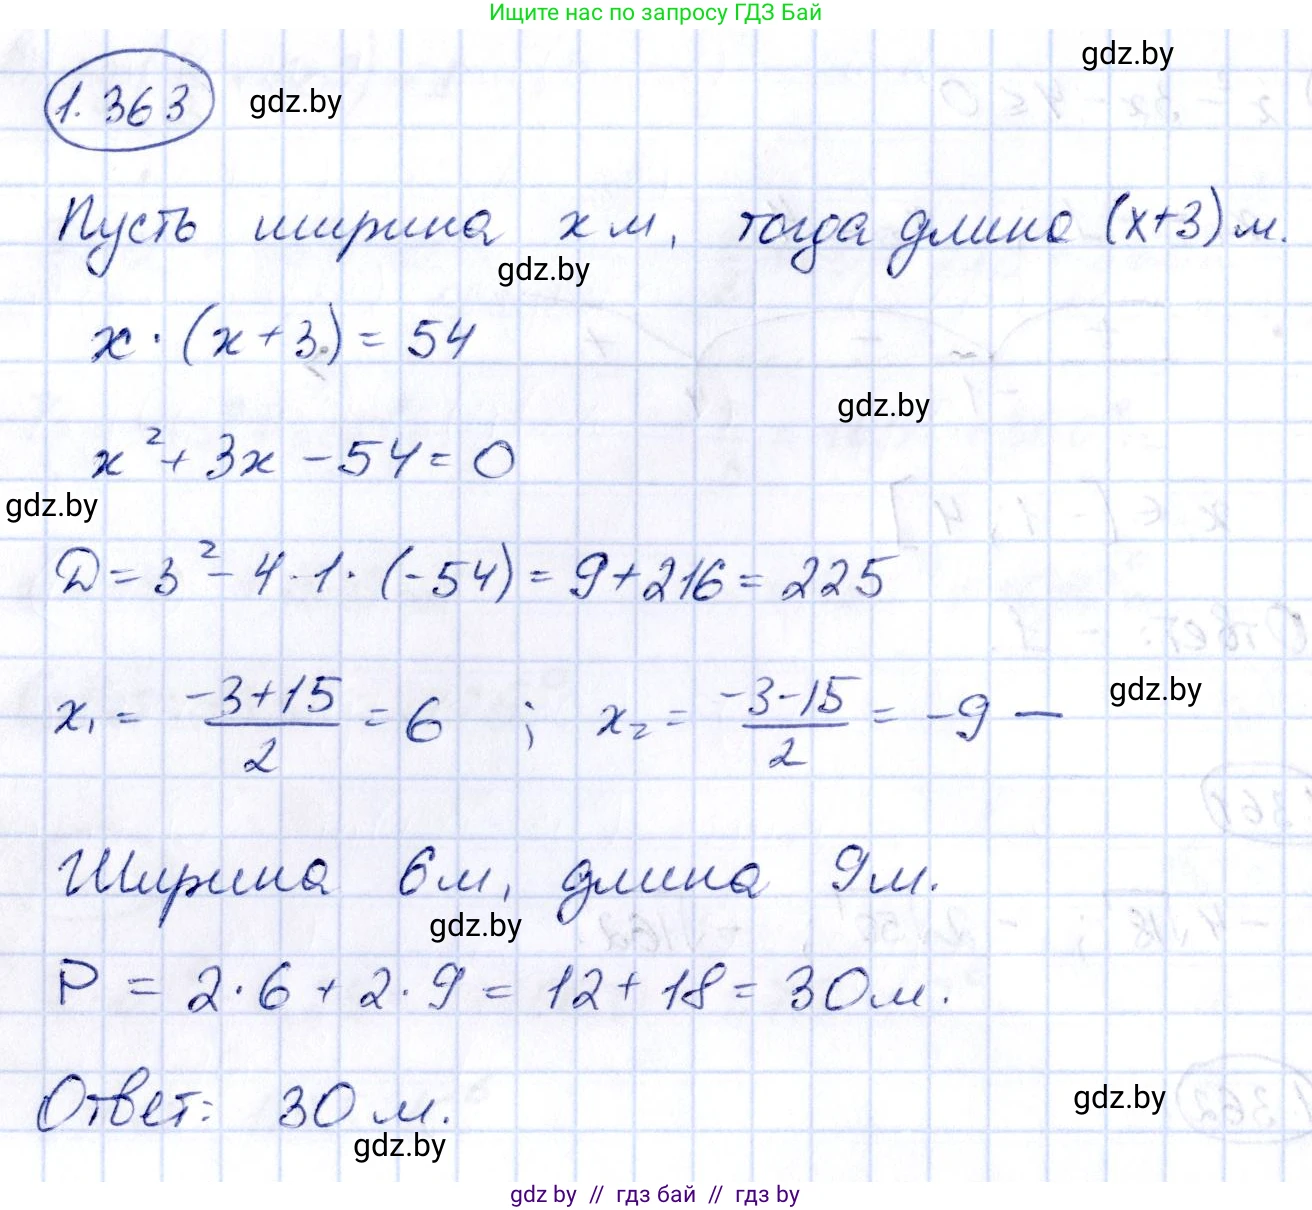 Ищите нас по запросу ГДЗ Бай
gdz.by
1.363 gdz.by
Пусть ширина x м, тогда длина (x+3) м.
gdz.by
x · (x+3) = 54
gdz.by
x² + 3x - 54 = 0
gdz.by
D = 3² - 4 · 1 · (-54) = 9 + 216 = 225
x₁ = (-3+15)/2 = 6 ; x₂ = (-3-15)/2 = -9 —
gdz.by
Ширина 6 м, длина 9 м.
gdz.by
P = 2 · 6 + 2 · 9 = 12 + 18 = 30 м.
Ответ: 30 м.
gdz.by
gdz.by
gdz.by // гдз бай // гдз by